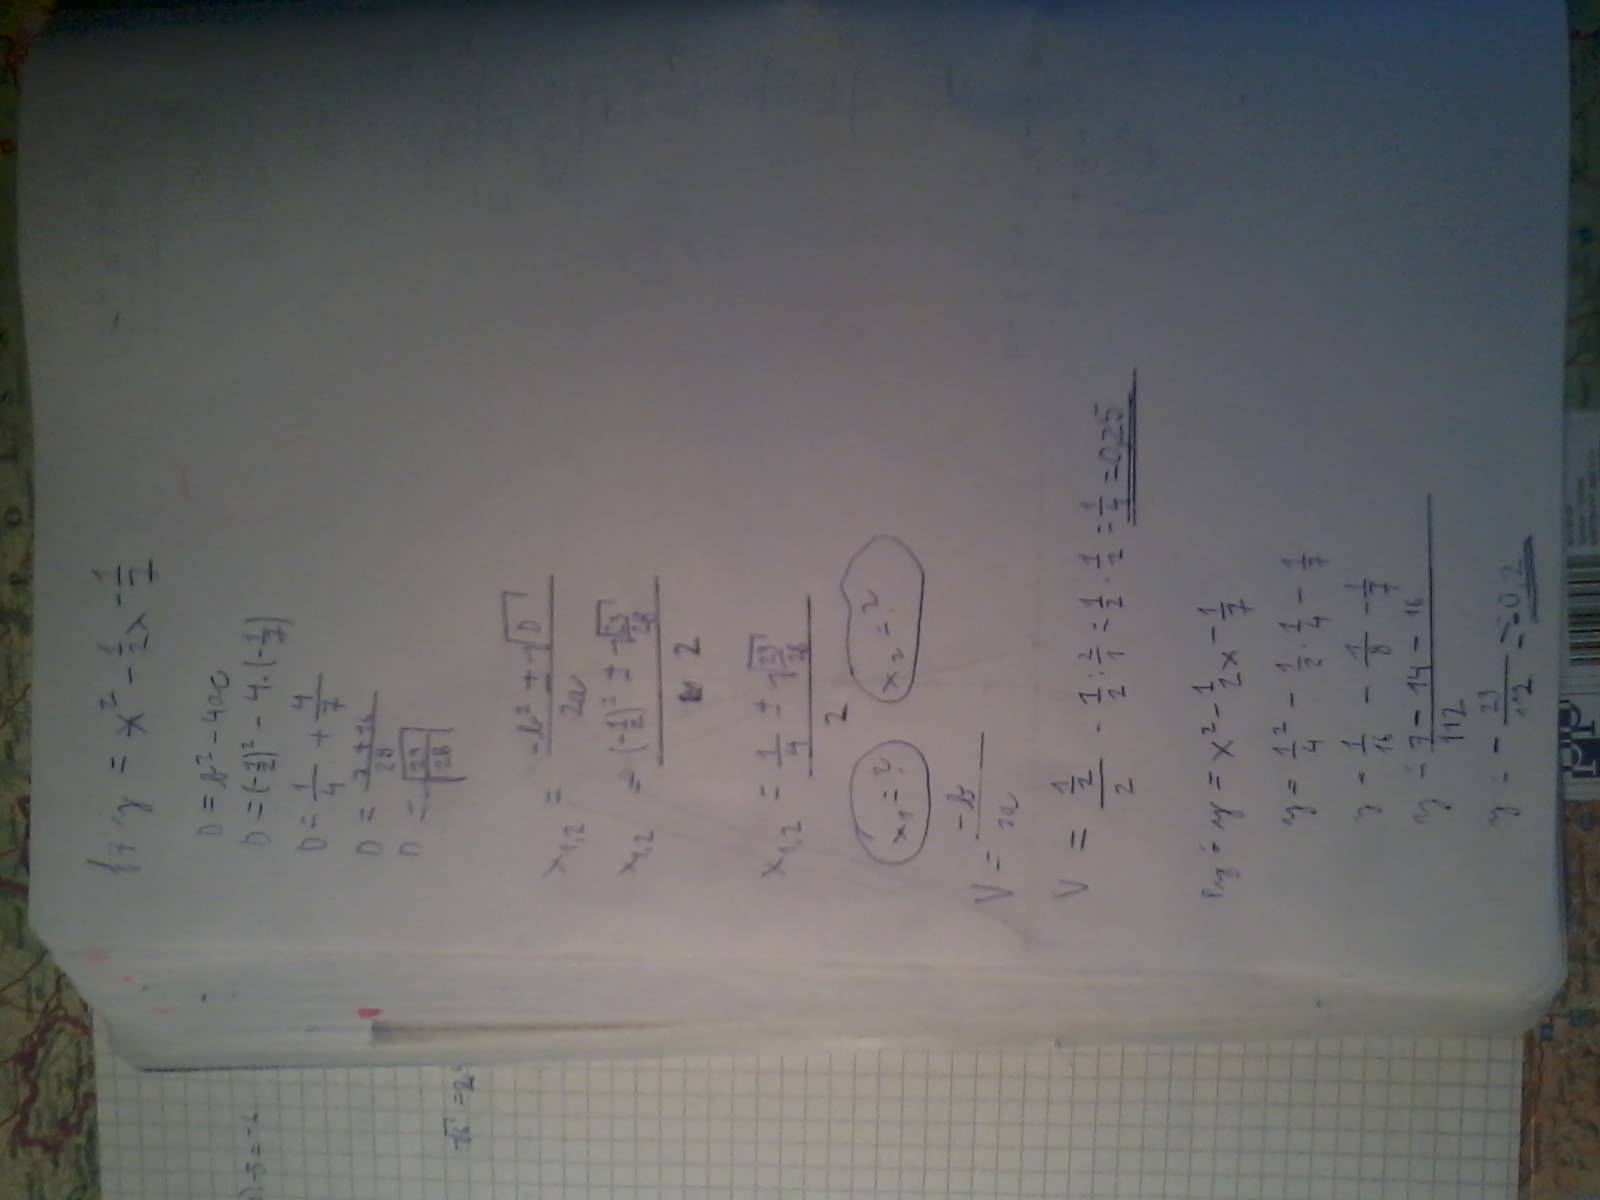 f: y = x² - 1/2x - 1/7
D = b² - 4ac
D = (-1/2)² - 4·(-1/7)
D = 1/4 + 4/7
D = 7+16/28
D = √23/28
x1,2 = -b² ± √D / 2a
x1,2 = (-1/2)² ± √23/28 / 2
x1,2 = 1/4 ± √23/28 / 2
x1 = ? x2 = ?
V = -b / 2a
V = 1/2 / 2 · 1/2 : 2/1 = 1/2 · 1/2 = 1/4 = 0,25
y = x² - 1/2x - 1/7
y = 1/4² - 1/2 · 1/4 - 1/7
y = 1/16 - 1/8 - 1/7
y = 7 - 14 - 16 / 112
y = - 23/112 = -0,2